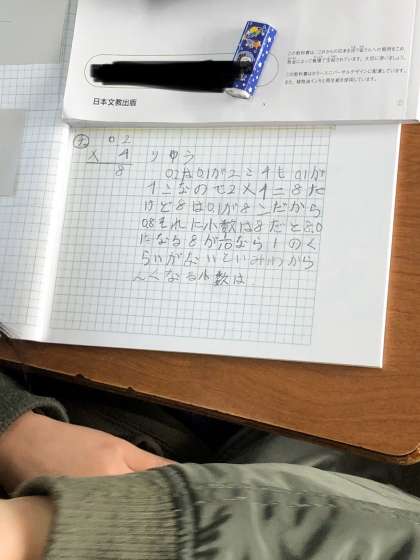 この教科書は、これからの日本を担う皆さんへの期待をこめ、
税金によって無償で支給されています。大切に使いましょう。
この教科書はカラーユニバーサルデザインに配慮しています。
また、植物油インキと再生紙を使用しています。
日本文教出版
0.2
× 4
8
りゆう
0.2は0.1が2こ4も0.1が
4こなので2×4=8だ
けど8は0.1が8こだから
0.8それに小数は8だと8.0
になる8が右なら1のく
らいがないといみわから
んくなる小数は